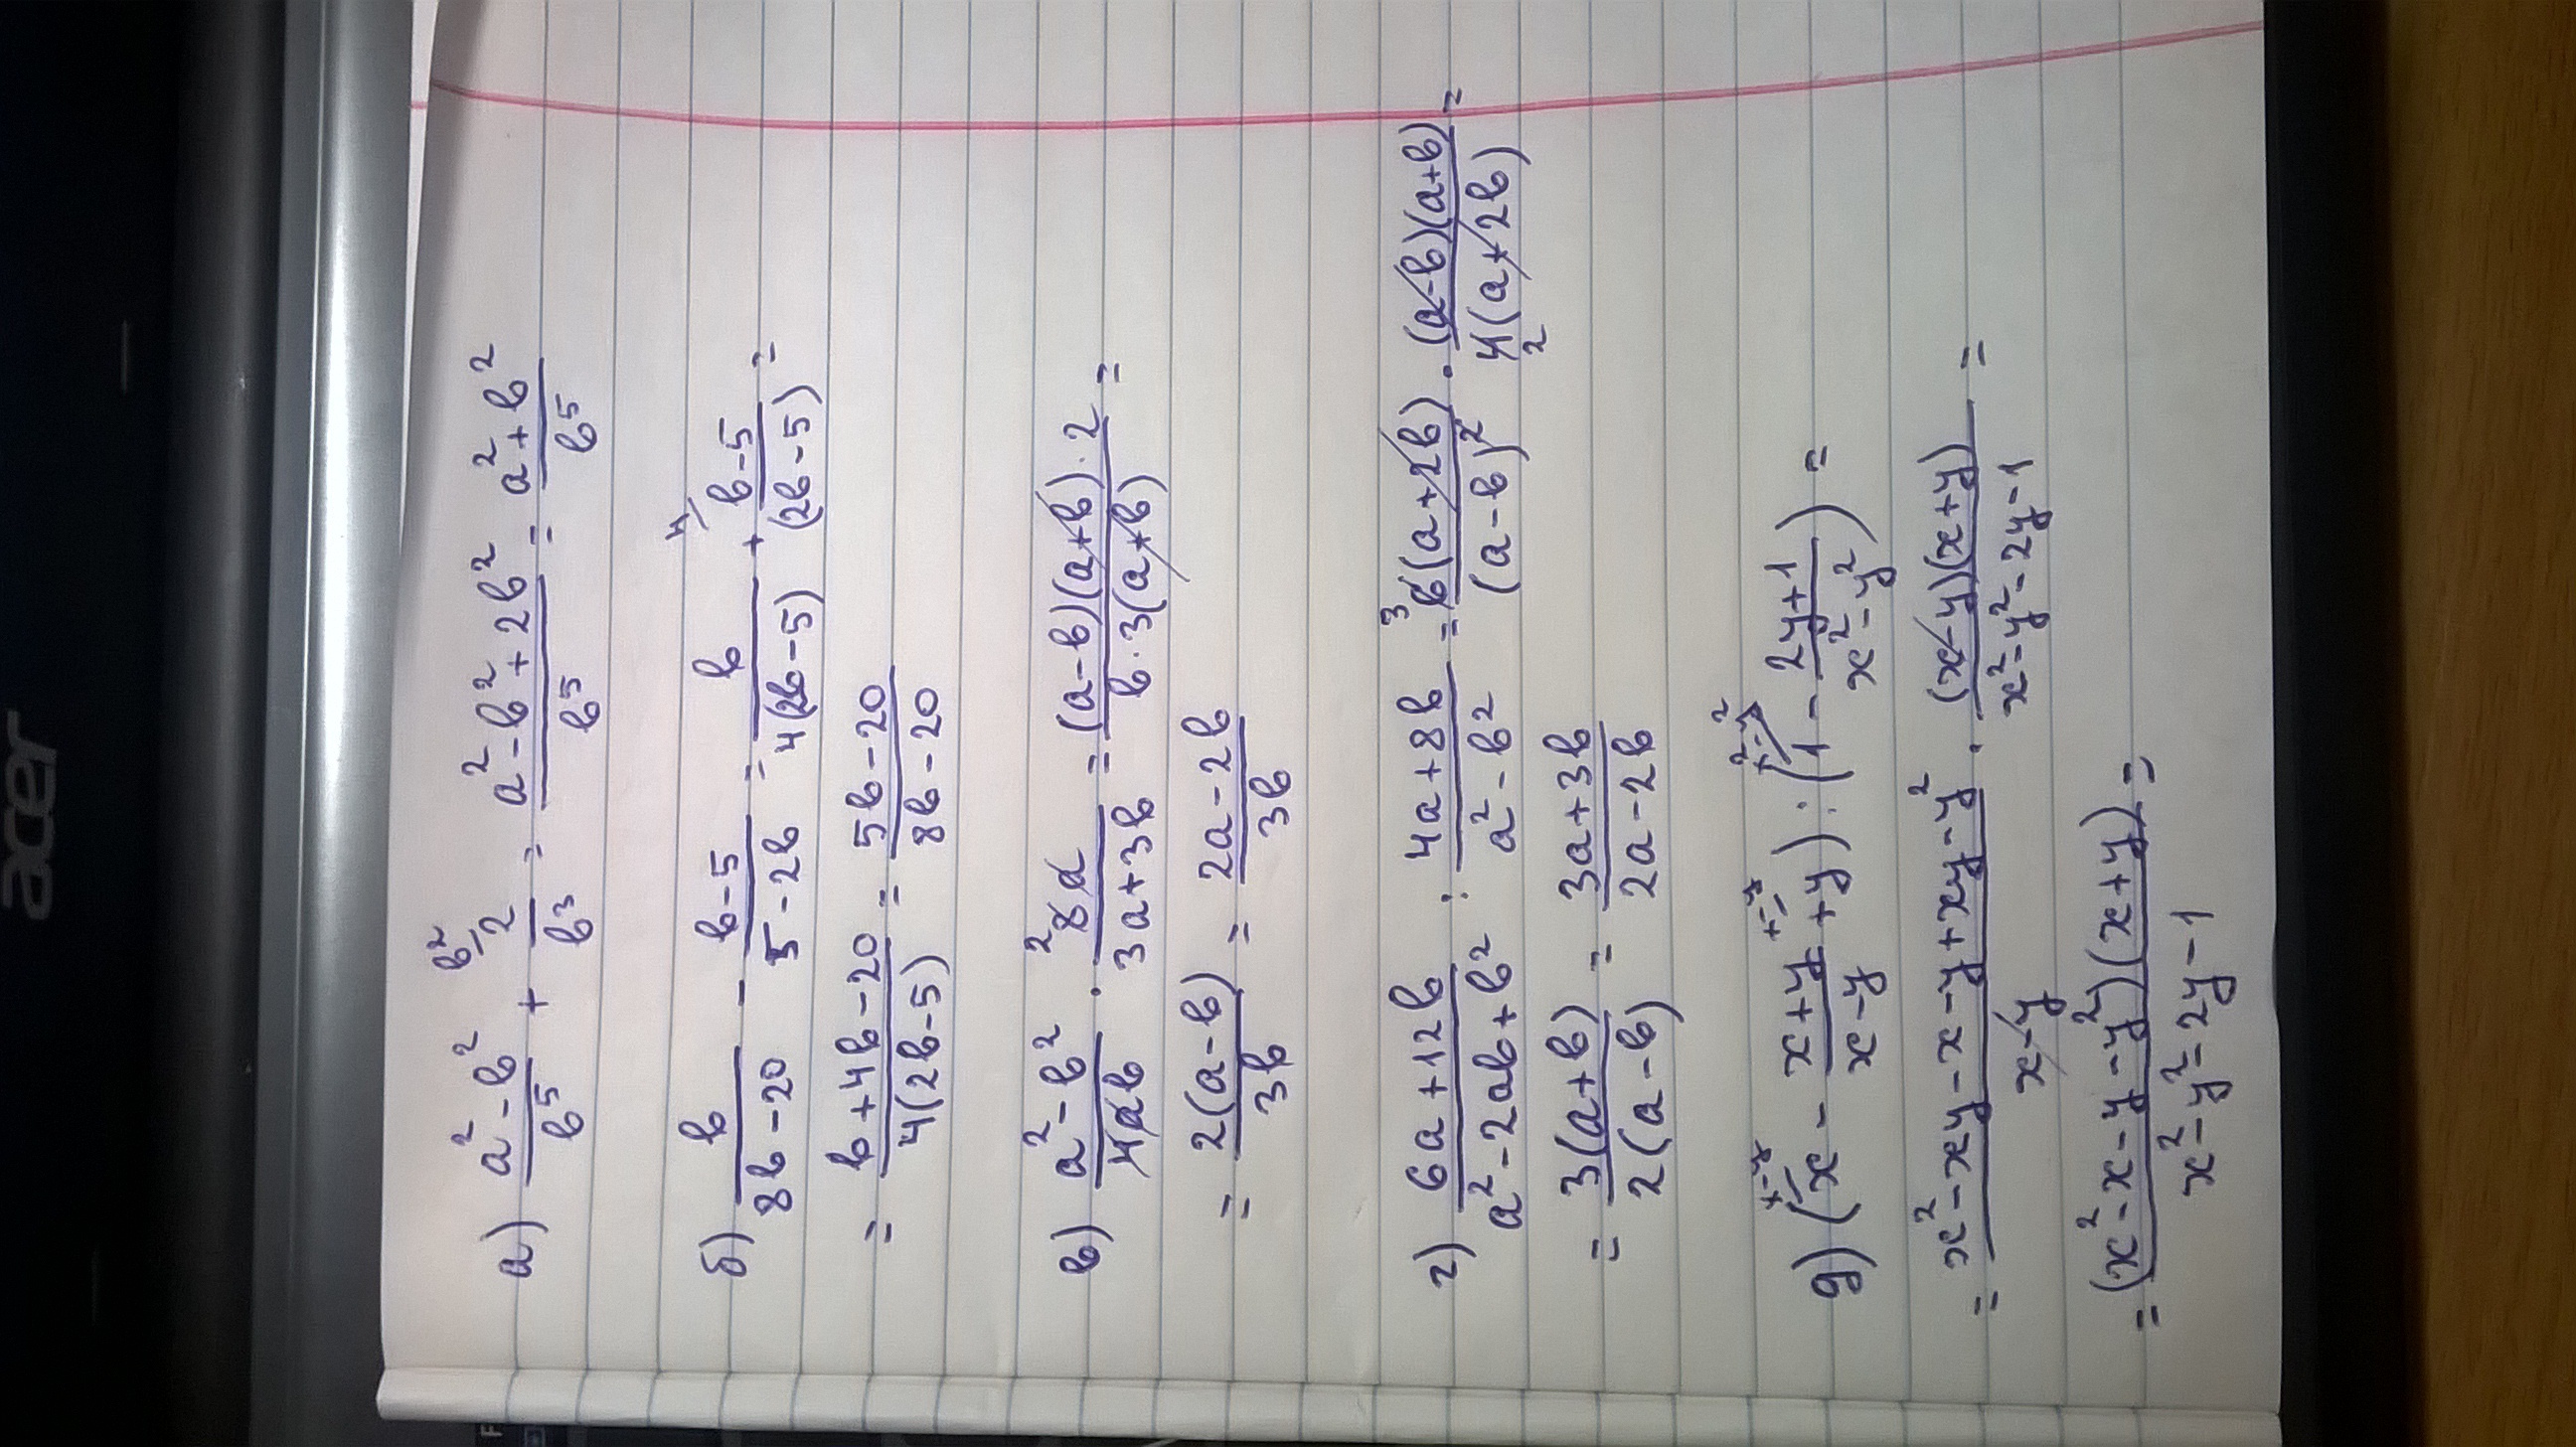 acer
а) (a² - b²)/b⁵ + 2/b³ ^(b²/) = (a² - b² + 2b²)/b⁵ = (a² + b²)/b⁵
б) b/(8b - 20) - (b - 5)/(5 - 2b) = b/(4(2b - 5)) + (b - 5)/(2b - 5) ^(4/) =
= (b + 4b - 20)/(4(2b - 5)) = (5b - 20)/(8b - 20)
в) (a² - b²)/(4ab) · ²8a/(3a + 3b) = ((a - b)(a + b) · 2)/(b · 3(a + b)) =
= 2(a - b)/(3b) = (2a - 2b)/(3b)
г) (6a + 12b)/(a² - 2ab + b²) : (4a + 8b)/(a² - b²) = ³6(a + 2b)/(a - b)² · (a - b)(a + b)/(₂4(a + 2b)) =
= 3(a + b)/(2(a - b)) = (3a + 3b)/(2a - 2b)
д) (^(x-y/)x - (x + y)/(x - y) + ^(x-y/)y) : (^(x²-y²/)1 - (2y + 1)/(x² - y²)) =
= (x² - xy - x - y + xy - y²)/(x - y) · ((x - y)(x + y))/(x² - y² - 2y - 1) =
= ((x² - x - y - y²)(x + y))/(x² - y² - 2y - 1) =